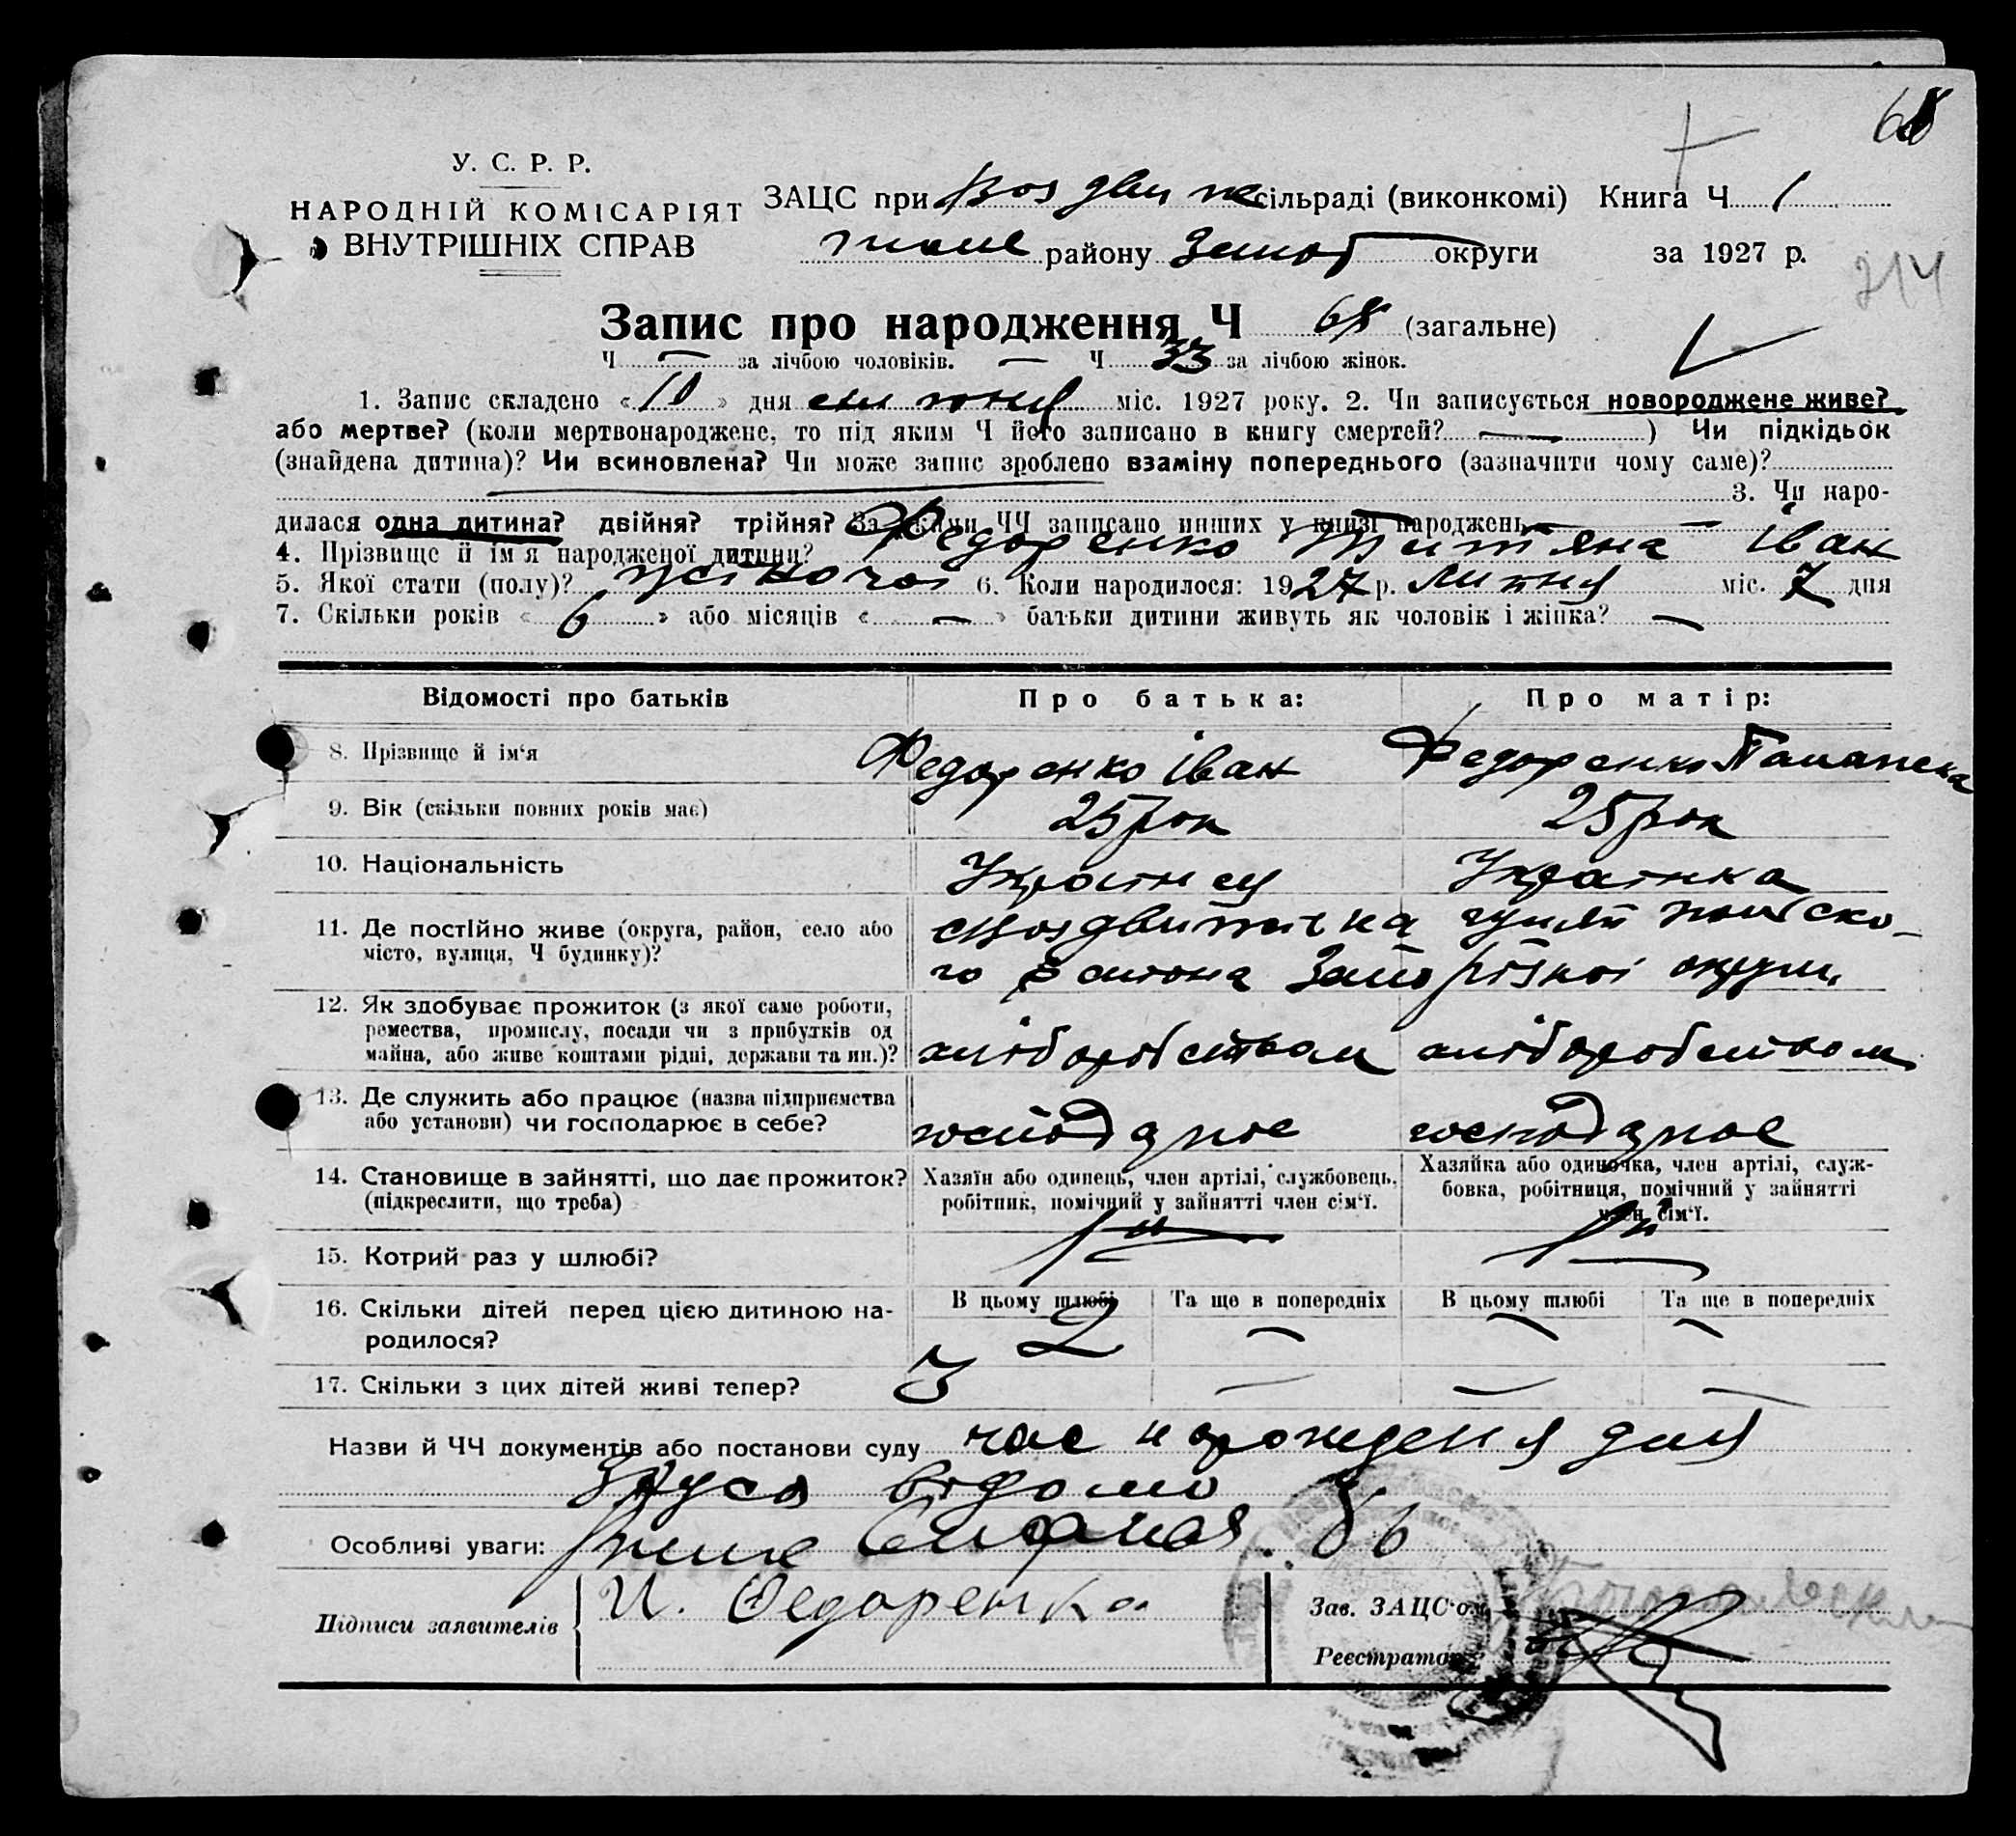 68
У. С. Р. Р.
НАРОДНІЙ КОМІСАРІЯТ
ВНУТРІШНІХ СПРАВ
ЗАЦС при Воздвиже сільраді (виконкомі) Книга Ч 1
району Запор округи за 1927 р.
214
Запис про народження Ч 68 (загальне)
Ч — за лічбою чоловіків. — Ч 33 за лічбою жінок.
1. Запис складено «10» дня міс. 1927 року. 2. Чи записується новороджене живе?
або мертве? (коли мертвонароджене, то під яким Ч його записано в книгу смертей? — ) Чи підкідьок
(знайдена дитина)? Чи всиновлена? Чи може запис зроблено взаміну попереднього (зазначити чому саме)?
3. Чи наро-
дилася одна дитина? двійня? трійня? За якими ЧЧ записано инших у книзі народжень — —
4. Прізвище й ім'я народженої дитини? Федоренко Титяна Іван
5. Якої стати (полу)? жіночої 6. Коли народилося: 1927 р. Липня міс. 7 дня
7. Скільки років «6» або місяців « — » батьки дитини живуть як чоловік і жінка? —
Відомості про батьків Про батька: Про матір:
8. Прізвище й ім'я Федоренко Іван Федоренко
9. Вік (скільки повних років має) 25 рок 25 рок
10. Національність Українец Українка
11. Де постійно живе (округа, район, село або
місто, вулиця, Ч будинку)?
сВоздвиживка гуляй польско-
го району Запорізкої округи
12. Як здобуває прожиток (з якої саме роботи,
ремества, промислу, посади чи з прибутків од
майна, або живе коштами рідні, держави та ин.)?
хліборобством хліборобством
13. Де служить або працює (назва підприємства
або установи) чи господарює в себе?
господарює господарює
14. Становище в зайнятті, що дає прожиток?
(підкреслити, що треба)
Хазяїн або одинець, член артілі, службовець,
робітник, помічний у зайнятті член сім'ї.
Хазяйка або одиночка, член артілі, служ-
бовка, робітниця, помічний у зайнятті
член сім'ї.
15. Котрий раз у шлюбі?
16. Скільки дітей перед цією дитиною на-
родилося?
В цьому шлюбі Та ще в попередніх В цьому шлюбі Та ще в попередніх
2 — — —
17. Скільки з цих дітей живі тепер? 3 — — —
Назви й ЧЧ документів або постанови суду час нарождения дня
відомо
Особливі уваги:
Підписи заявителів И. Федоренко
Зав. ЗАЦС'ом
Реєстратор